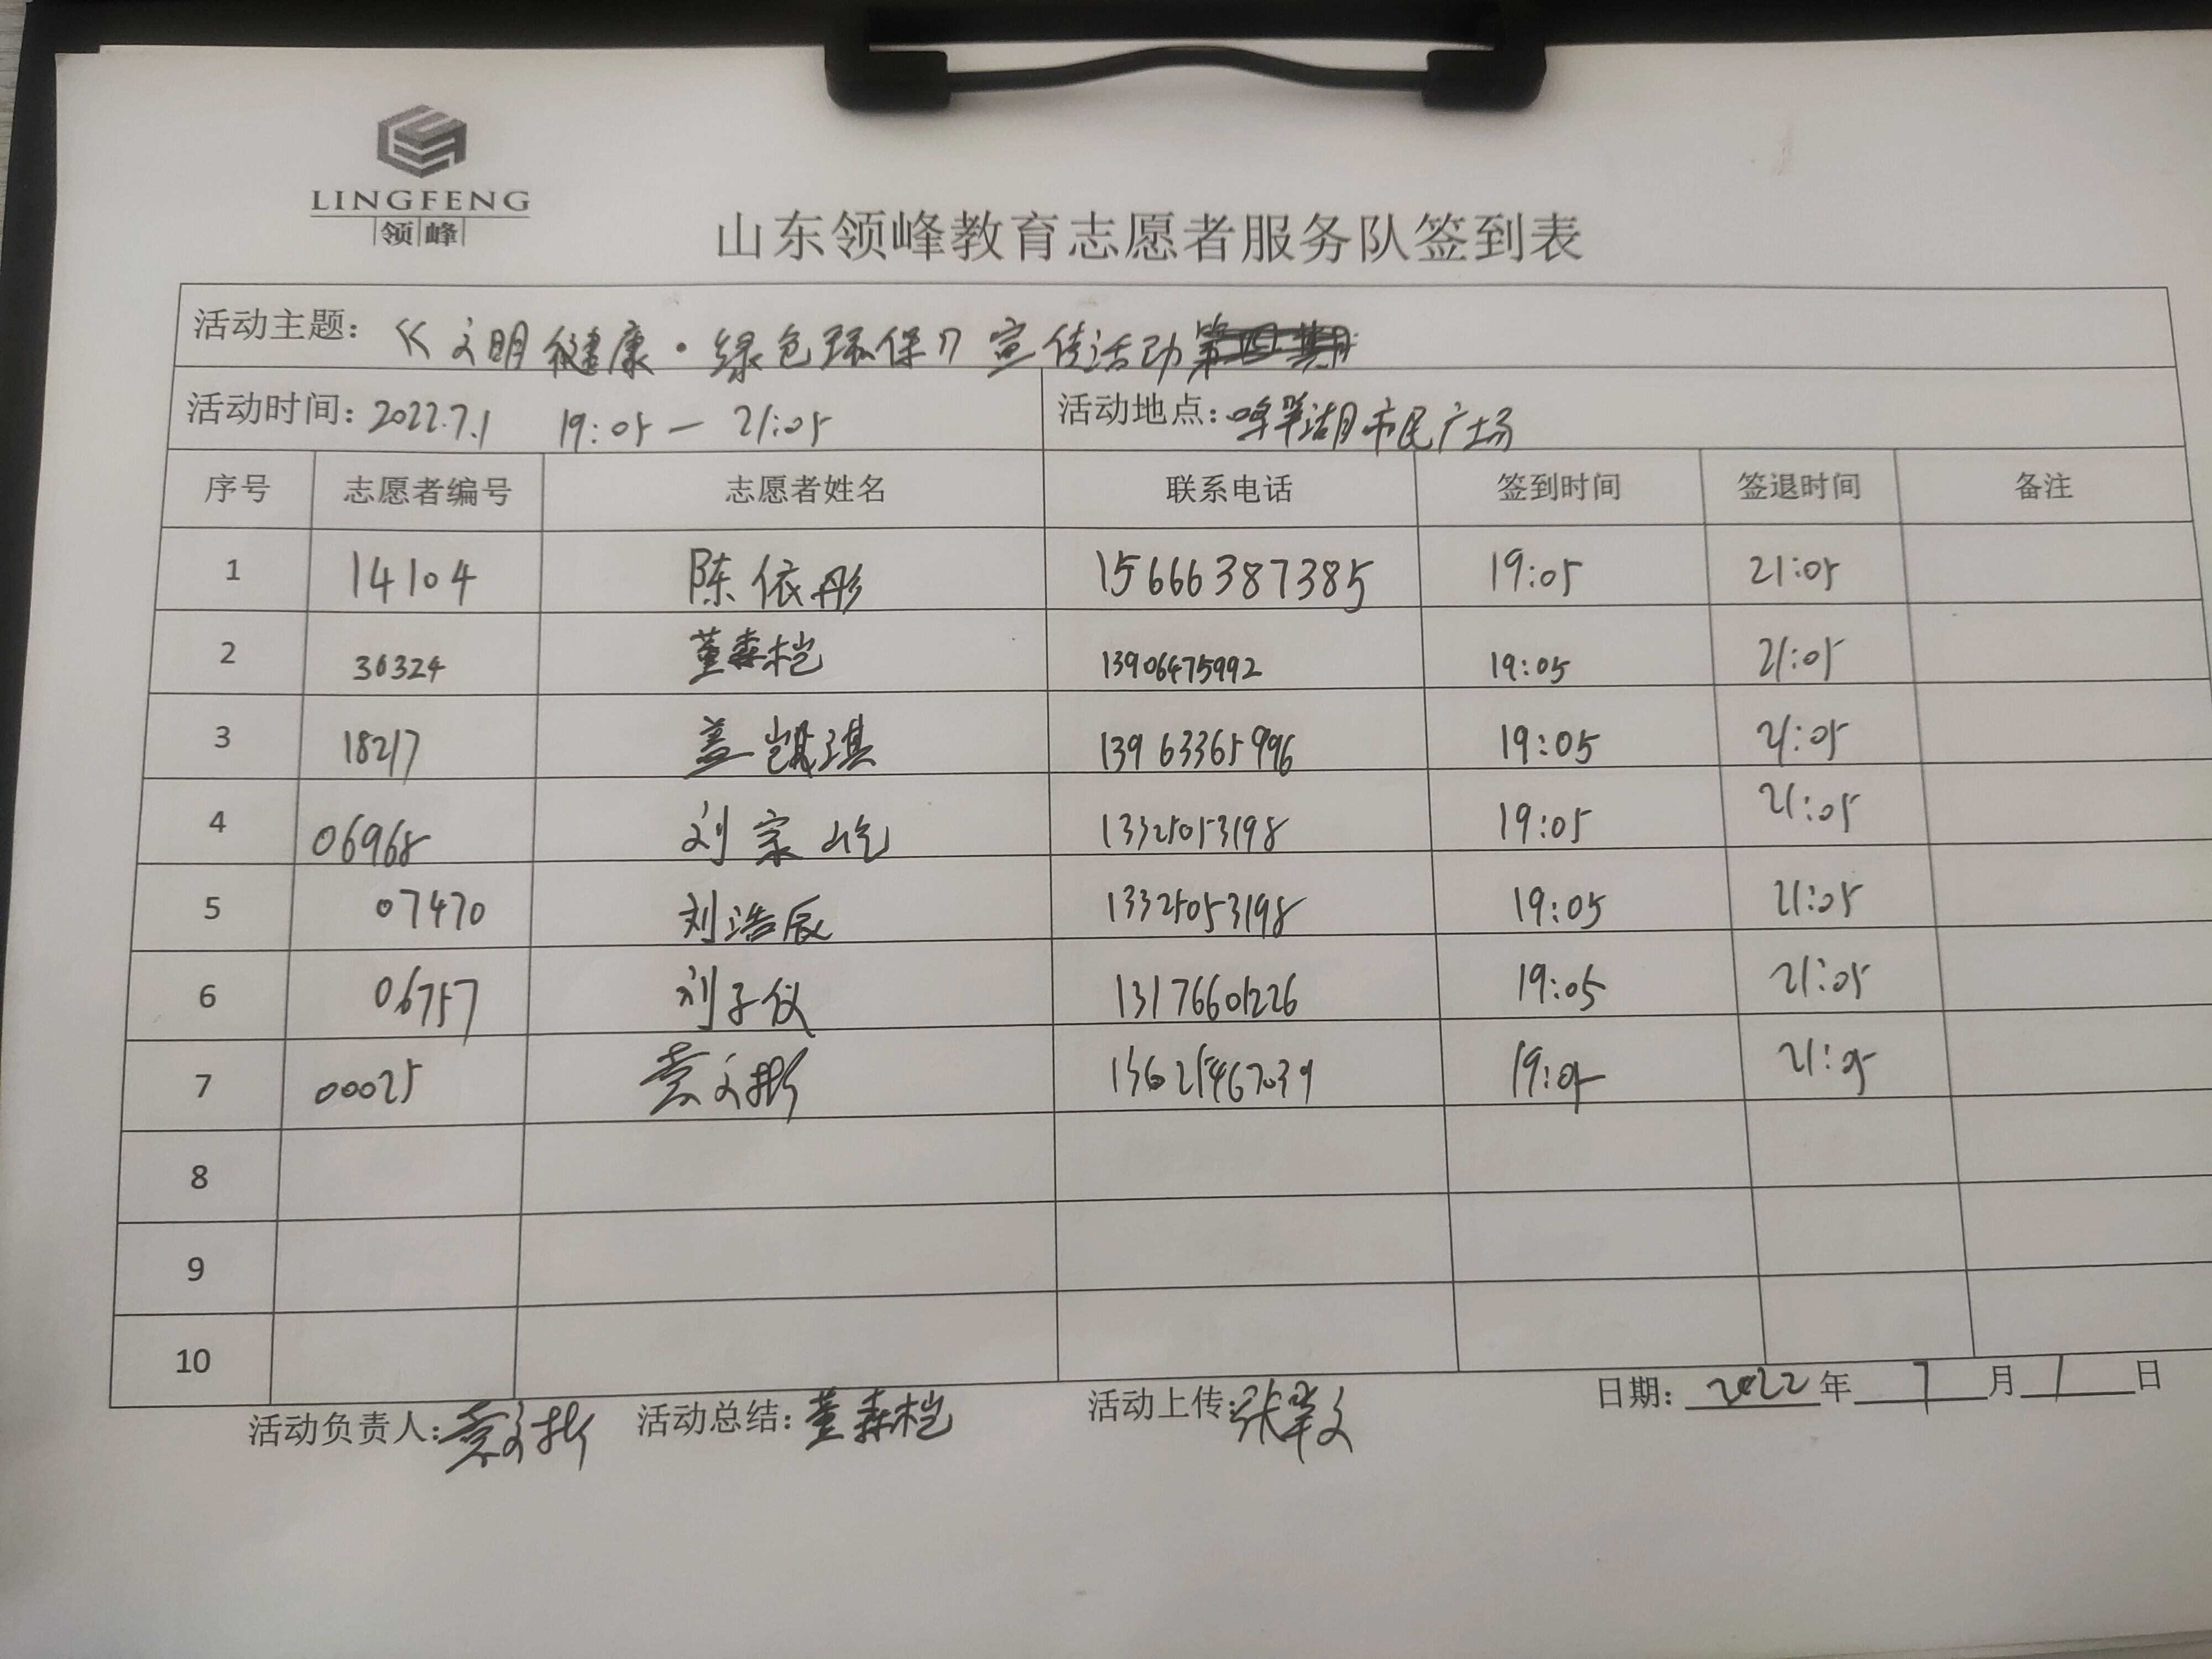 LINGFENG
领峰
山东领峰教育志愿者服务队签到表
活动主题: 《文明健康·绿色环保》宣传活动
活动时间: 2022.7.1 19:05 — 21:05 活动地点: 市民广场
序号 志愿者编号 志愿者姓名 联系电话 签到时间 签退时间 备注
1 14104 陈依彤 15666387385 19:05 21:05
2 36324 董森桤 13906475992 19:05 21:05
3 18217 盖凯琪 13963365996 19:05 21:05
4 06968 刘家屹 13325053198 19:05 21:05
5 07470 刘浩辰 13325053198 19:05 21:05
6 06757 刘子仪 13176601226 19:05 21:05
7 00025 19:05 21:05
8
9
10
活动负责人: 活动总结: 董森桤 活动上传: 日期: 2022 年 7 月 1 日